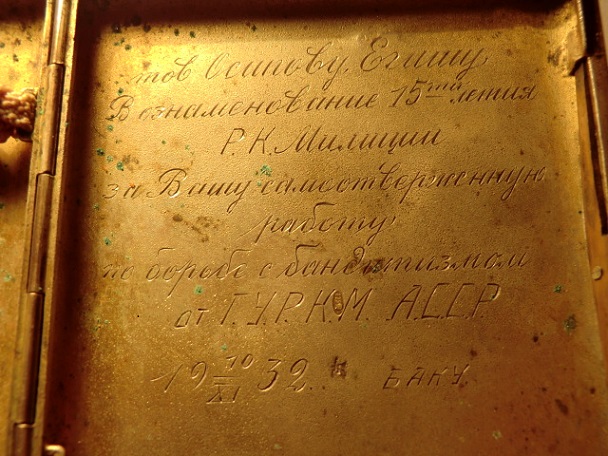 тов Осипову Егишу
В ознаменование 15ти летия
Р.К. Милиции
за Вашу самоотверженную
работу
по борьбе с бандитизмом
от Г.У.Р.К.М. А.С.С.Р.
19 10/XI 32 г. БАКУ